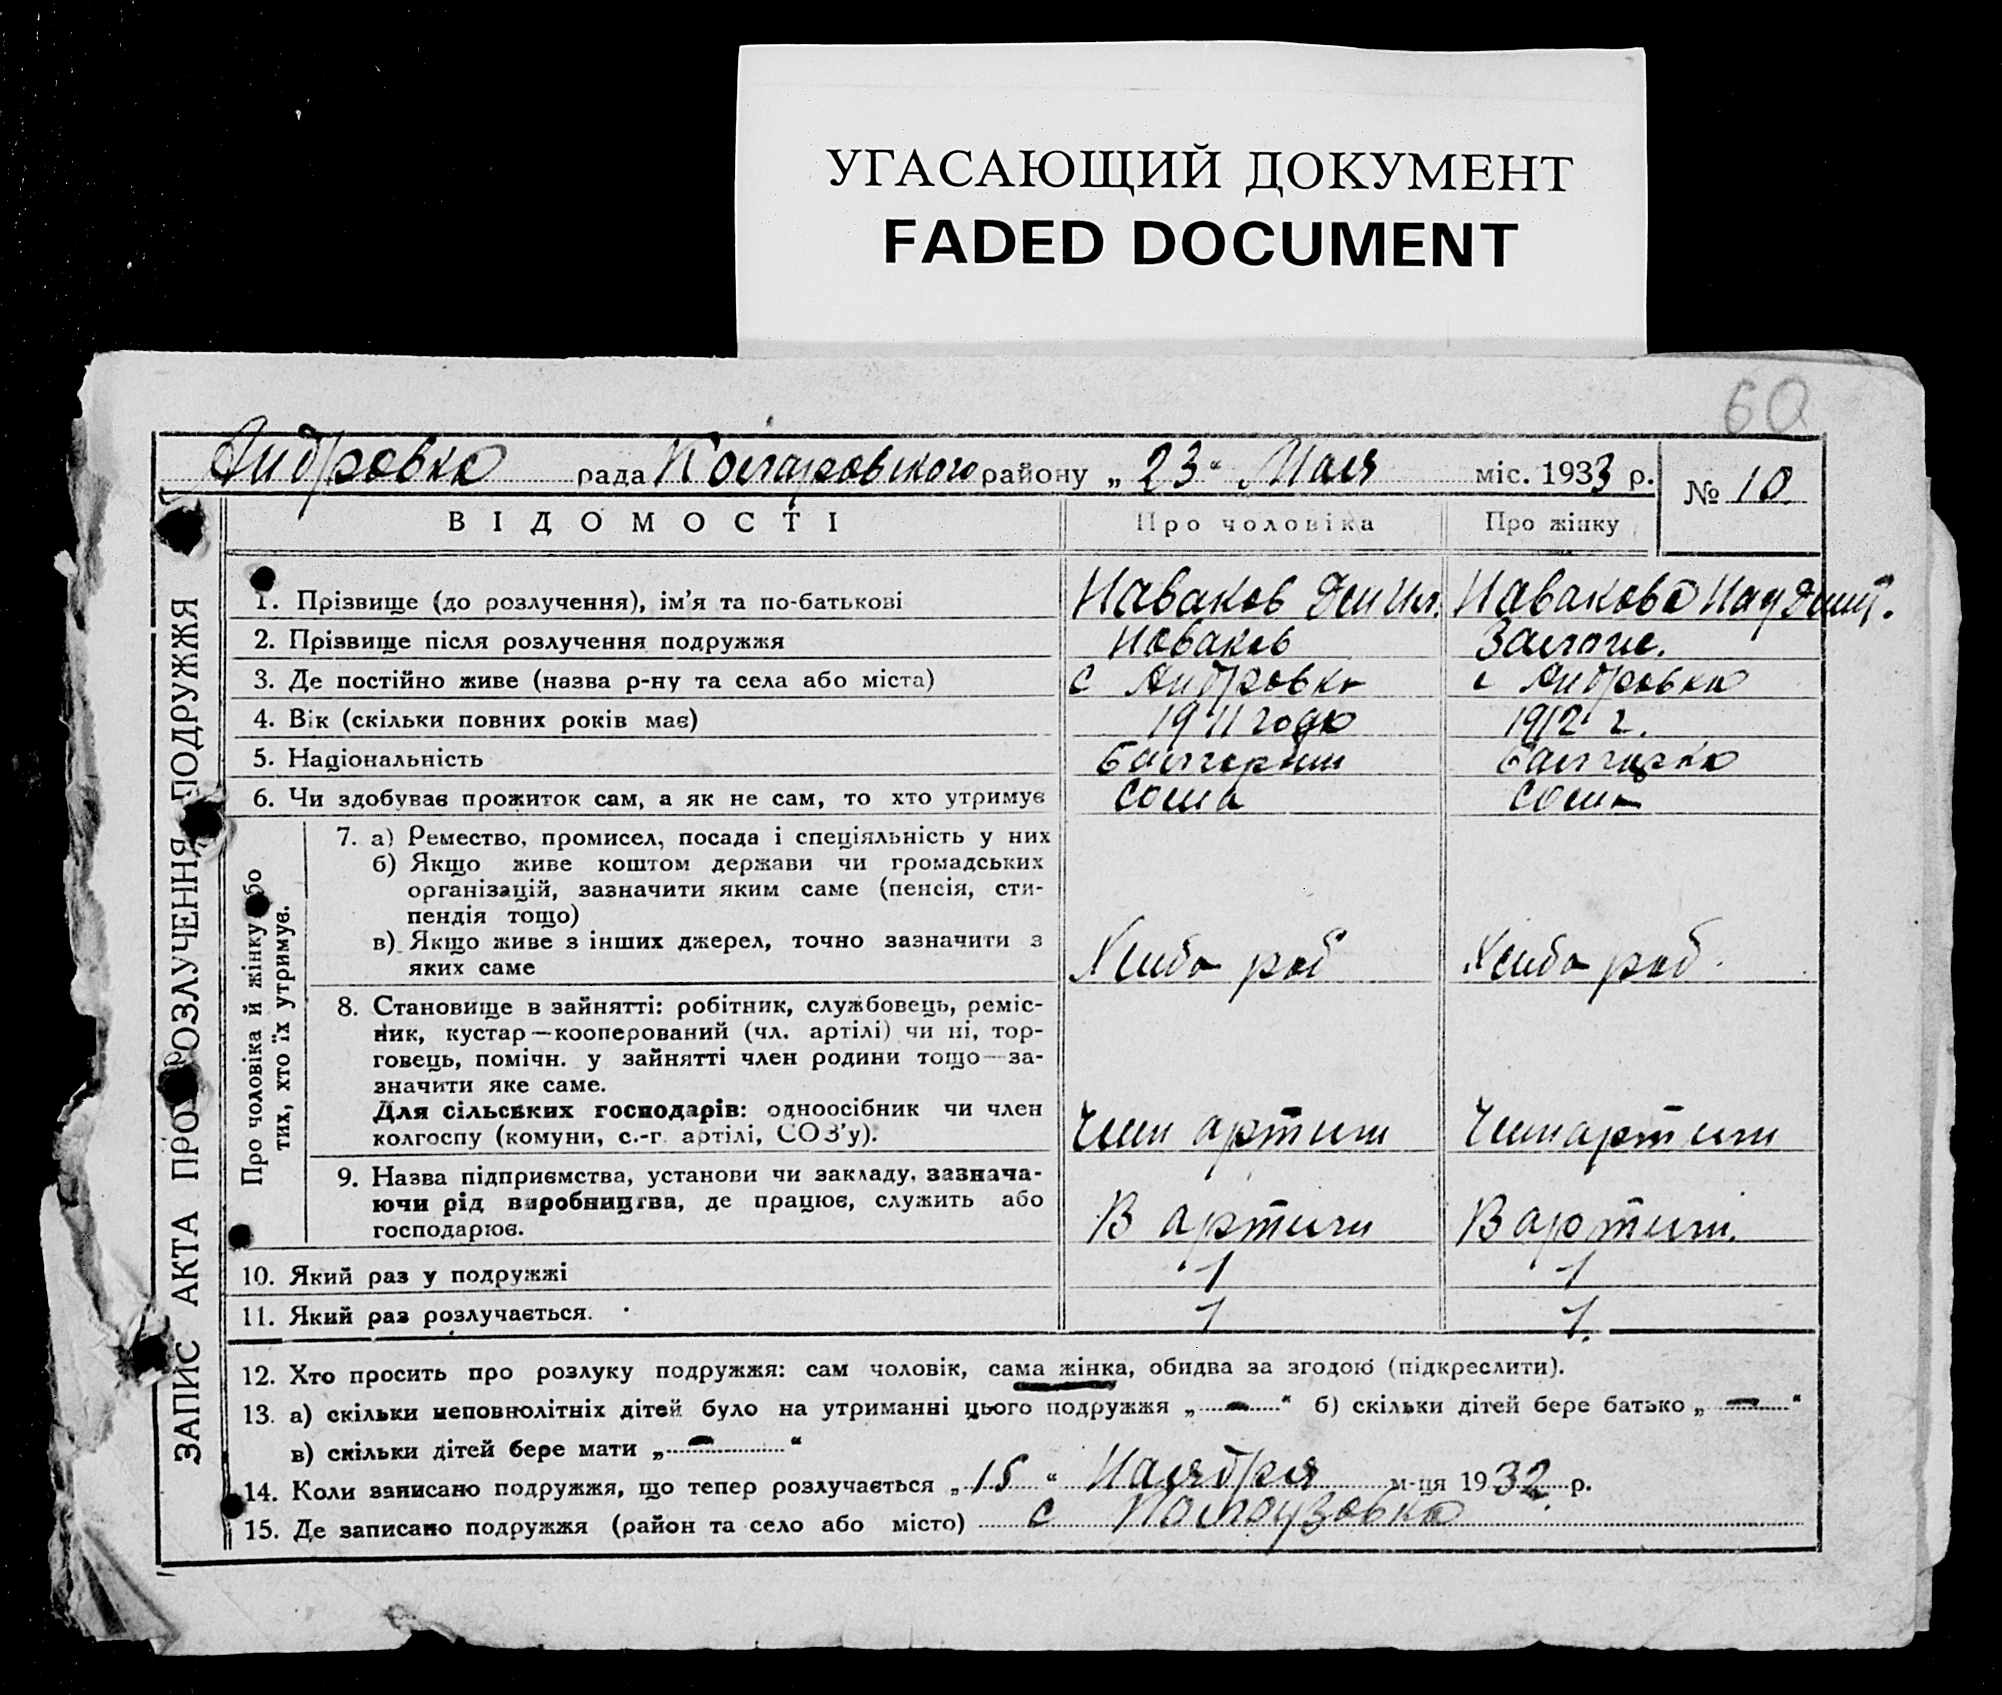 УГАСАЮЩИЙ ДОКУМЕНТ
FADED DOCUMENT
60
Андровка рада Коларовского району „23“ Мая міс. 1933 р. № 10
ВІДОМОСТІ Про чоловіка Про жінку
ЗАПИС АКТА ПРО РОЗЛУЧЕННЯ ПОДРУЖЖЯ
1. Прізвище (до розлучення), ім'я та по-батькові Наваков Навакова
2. Прізвище після розлучення подружжя Новаков
3. Де постійно живе (назва р-ну та села або міста) с Андровка с Андровка
4. Вік (скільки повних років має) 1911 года 1912 г.
5. Національність болгарин болгарка
6. Чи здобував прожиток сам, а як не сам, то хто утримує
Про чоловіка й жінку або
тих, хто їх утримує.
7. а) Ремество, промисел, посада і спеціяльність у них
б) Якщо живе коштом держави чи громадських
організацій, зазначити яким саме (пенсія, сти-
пендія тощо)
в) Якщо живе з інших джерел, точно зазначити з
яких саме Хлибо роб Хлибо роб.
8. Становище в зайнятті: робітник, службовець, реміс-
ник, кустар—кооперований (чл. артілі) чи ні, тор-
говець, помічн. у зайнятті член родини тощо—за-
значити яке саме.
Для сільських господарів: одноосібник чи член
колгоспу (комуни, с.-г. артілі, СОЗ'у). Член артели Член артели
9. Назва підприємства, установи чи закладу, зазнача-
ючи рід виробництва, де працює, служить або
господарює. В артили В артили.
10. Який раз у подружжі 1 1
11. Який раз розлучається. 1 1.
12. Хто просить про розлуку подружжя: сам чоловік, сама жінка, обидва за згодою (підкреслити).
13. а) скільки неповнолітніх дітей було на утриманні цього подружжя „ — “ б) скільки дітей бере батько „ — “
в) скільки дітей бере мати „ — “
14. Коли записано подружжя, що тепер розлучається „15“ Наября м-ця 1932 р.
15. Де записано подружжя (район та село або місто) с